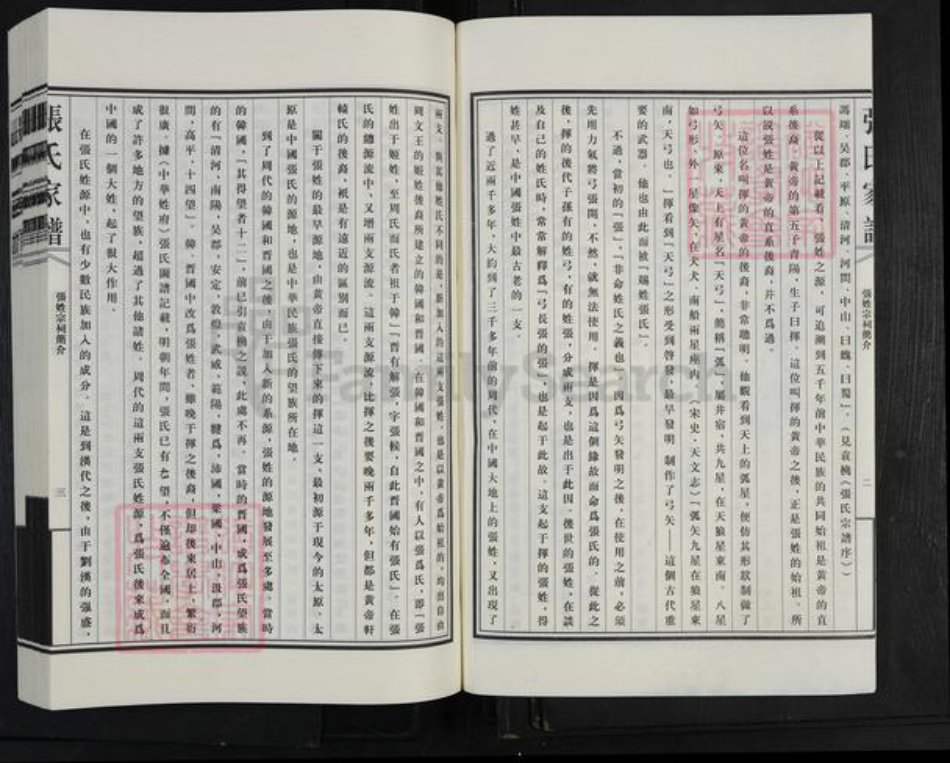 張氏家譜
張姓宗祠簡介
二
馮翊、吳郡、平原、清河、河間、中山、曰魏、曰蜀」。（見袁桷《張氏宗譜序》）
從以上記載看，張姓之源，可追溯到五千年前中華民族的共同始祖是黃帝的直
系後裔，黃帝的第五子青陽，生子曰揮。這位叫揮的黃帝之後，正是張姓的始祖。所
以說張姓是黃帝的直系後裔，并不爲過。
這位名叫揮的黃帝的後裔，非常聰明。他觀看到天上的弧星，便仿其形狀制做了
弓矢。原來，天上有星名「天弓」，簡稱「弧」，屬井宿，共九星，在天狼星東南。八星
如弓形，外一星像矢，在大犬、南船兩星座内。《宋史·天文志》「弧矢九星在狼星東
南，天弓也。」揮看到「天弓」之形受到啓發，最早發明、制作了弓矢——這個古代重
要的武器。他也由此而被「賜姓張氏」。
不過，當初的「張」，「非命姓氏之義也」，因爲弓矢發明之後，在使用之前，必須
先用力氣將弓張開，不然，就無法使用。揮是因爲這個緣故而命爲張氏的。從此之
後，揮的後代子孫有的姓弓，有的姓張，分成兩支，也是出于此因。後世的張姓，在談
及自己的姓氏時，常常解釋爲「弓長張的張」，也是起于此故。這支起于揮的張姓，得
姓甚早，是中國張姓中最古老的一支。
過了近兩千多年，大約到了三千多年前的周代，在中國大地上的張姓，又出現了
兩支。與其他姓氏不同的是，新加入的這兩支張姓，也是以黃帝爲始祖的，均出自由
周文王的姬姓後裔所建立的韓國和晋國。在韓國和晋國之中，有人以張爲氏，即「張
姓出于姬姓，至周氏而氏者祖于韓」「晋有解張，字張侯，自此晋國始有張氏」。在張
氏的總源流中，又增兩支源流。這兩支源流，比揮之後要晚兩千多年，但都是黃帝軒
轅氏的後裔，衹是有遠近的區别而已。
關于張姓的最早源地，由黃帝直接傳下來的揮這一支，最初源于現今的太原。太
原是中國張氏的源地，也是中華民族張氏的望族所在地。
到了周代的韓國和晋國之後，由于加入新的系源，張姓的源地發展至多處。當時
的韓國，「其得望者十二」，前已引袁桷之説，此處不再。當時的晋國，成爲張氏望族
的有「清河、南陽、吳郡、安定、敦煌、武威、範陽、犍爲、沛國、梁國、中山、汲郡、河
間、高平，十四望」。韓、晋國中改爲張姓者，雖晚于揮之後裔，但却後來居上，繁衍
很廣。據《中華姓府》張氏圖譜記載，明朝年間，張氏已有 望，不僅遍布全國，而且
成了許多地方的望族，超過了其他諸姓。周代的這兩支張姓源，爲張氏後來成爲
中國的一個大姓，起了很大作用。
在張氏姓源中，也有少數民族加入的成分。這是到漢代之後，由于劉漢的强盛，
張氏家譜
張姓宗祠簡介
三
FamilySearch